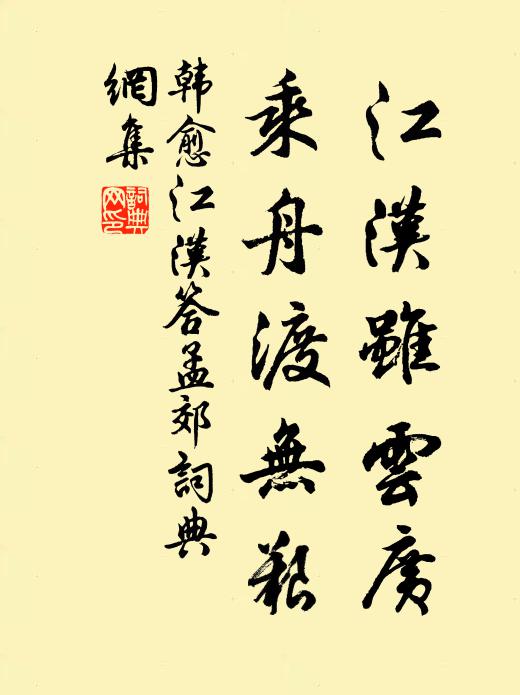 江漢雖雲廣
乘舟渡無艱
韩愈江漢答孟郊詞典
網集
詞典
网印